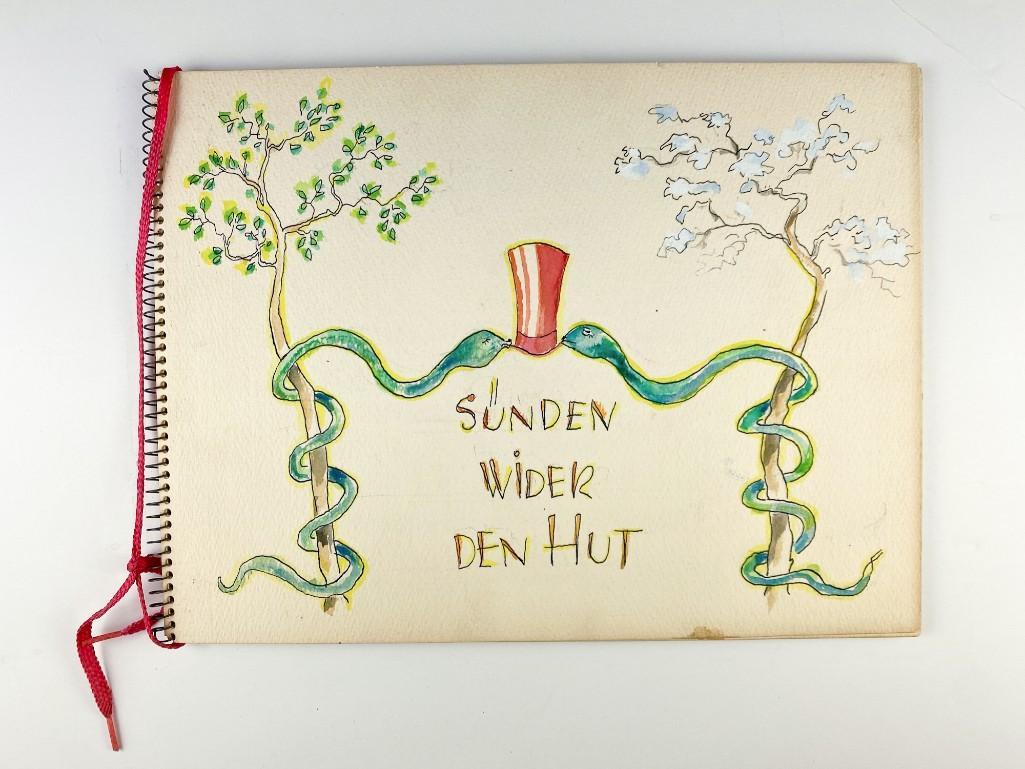 SÜNDEN
WIDER
DEN HUT